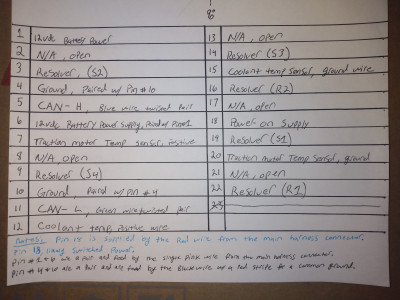 1 12vdc Battery Power
2 N/A, open
3 Resolver, (S2)
4 Ground, Paired w/ Pin #10
5 CAN-H, Blue wire twisted pair
6 12vdc Battery Power Supply, Paired w/ Pin #1
7 Traction motor Temp sensor, positive
8 N/A, open
9 Resolver (S4)
10 Ground, Paired w/ Pin #4
11 CAN-L, Green wire twisted pair
12 Coolant temp, Positive wire
13 N/A, open
14 Resolver (S3)
15 Coolant temp sensor, ground wire
16 Resolver (R2)
17 N/A, open
18 Power on Supply
19 Resolver (S1)
20 Traction motor Temp Sensor, ground
21 N/A, open
22 Resolver (R1)
23
Notes: Pin 18 is supplied by the Red wire from the main harness connector.
Pin 18, Switched Power.
Pin #1 & 6 are a pair and feed by the single Pink wire from the main harness connector.
Pin #4 & 10 are a pair and are feed by the Black wire w/ a red stripe as a common ground.